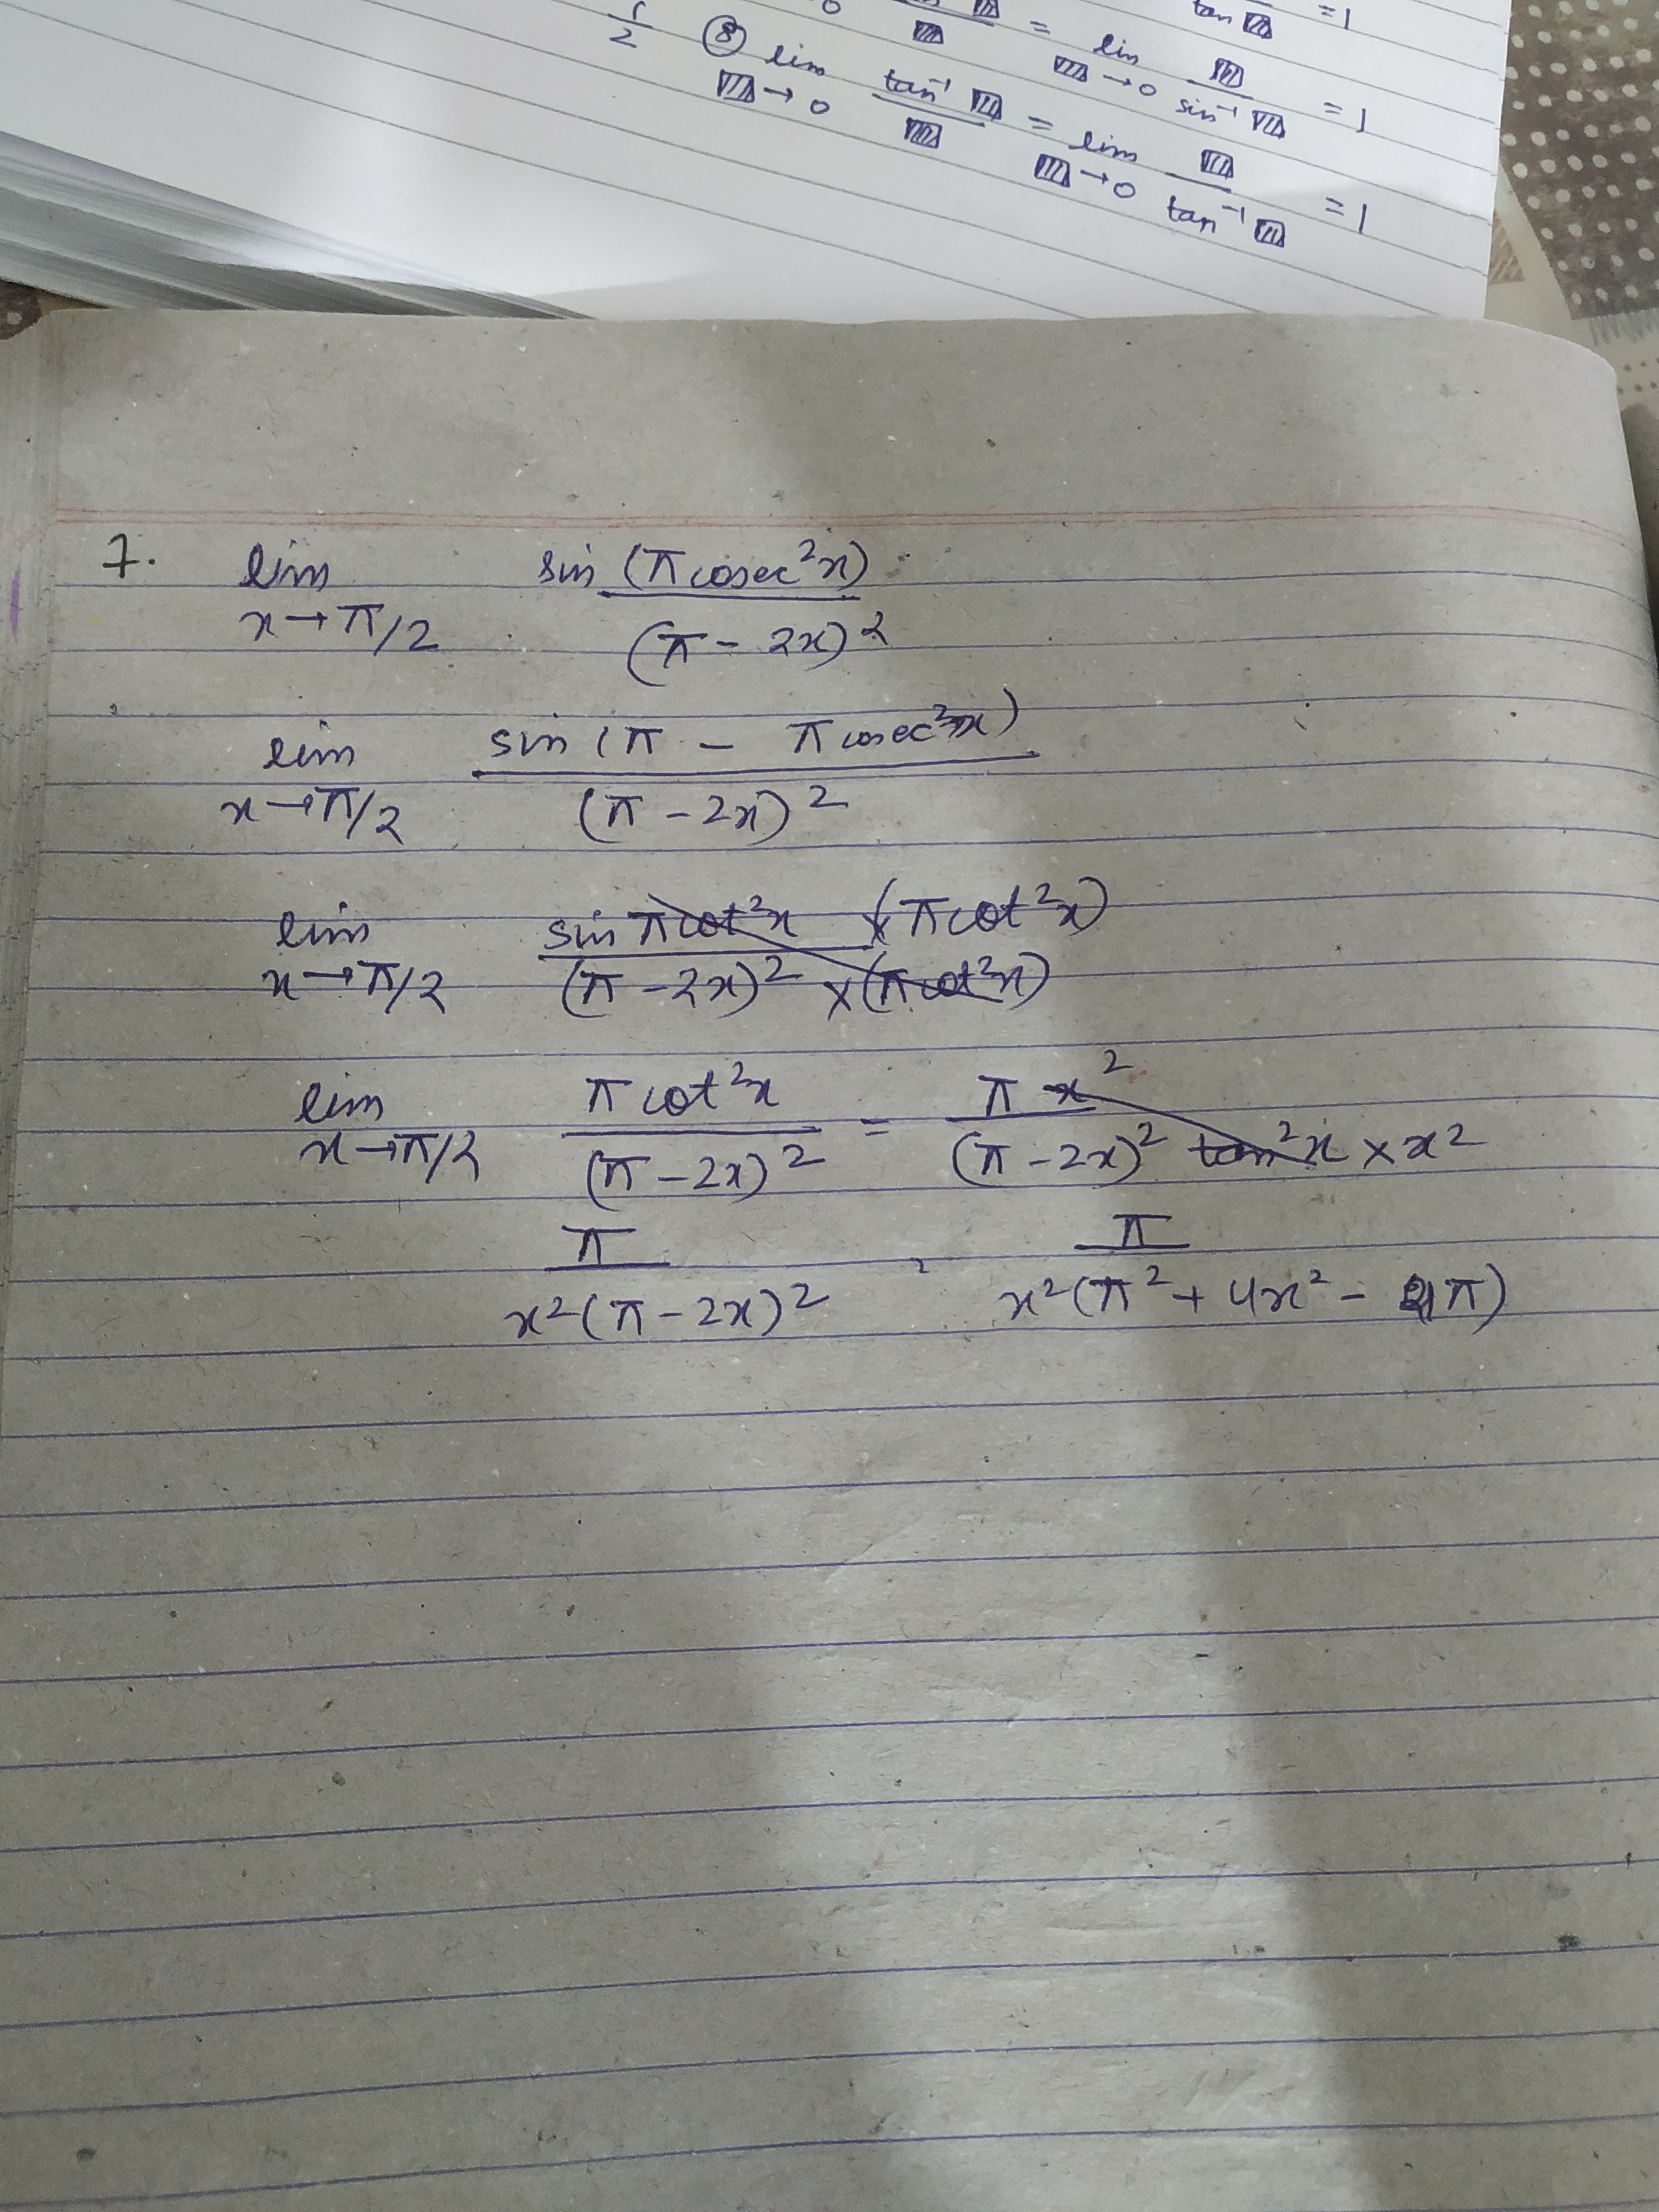 tan ▨ = 1
0 ▨ = lim ▨ → 0 ▨ / sin⁻¹ ▨ = 1
1/2 ⑧ lim ▨ → 0 tan⁻¹ ▨ / ▨ = lim ▨ → 0 ▨ / tan⁻¹ ▨ = 1
7. lim x → π/2 sin (π cosec² x) / (π - 2x)²
lim x → π/2 sin (π - π cosec² x) / (π - 2x)²
lim x → π/2 sin π cot² x × (π cot² x) / (π - 2x)² × (π cot² x)
lim x → π/2 π cot² x / (π - 2x)² = π x² / (π - 2x)² tan² x × x²
π / x² (π - 2x)² , π / x² (π² + 4x² - 4π)